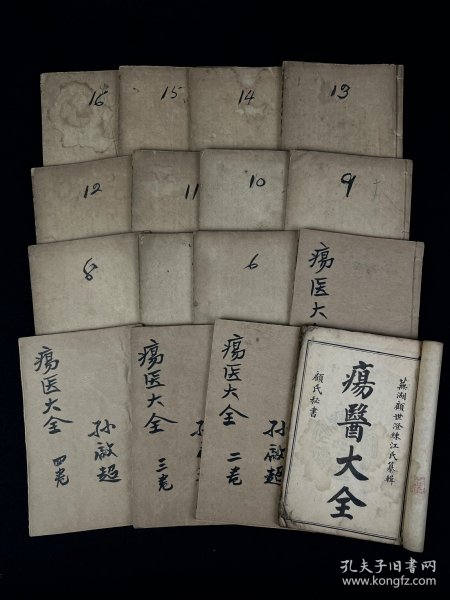 16
15
14
13
12
11
10
9
8
6
瘍医大
瘍医大全
四卷
孙啟超
瘍医大全
三卷
孙
瘍医大全
二卷
孙啟超
蕪湖顧世澄練江氏纂輯
瘍醫大全
顧氏秘書
孔夫子旧书网
www.kongfz.com